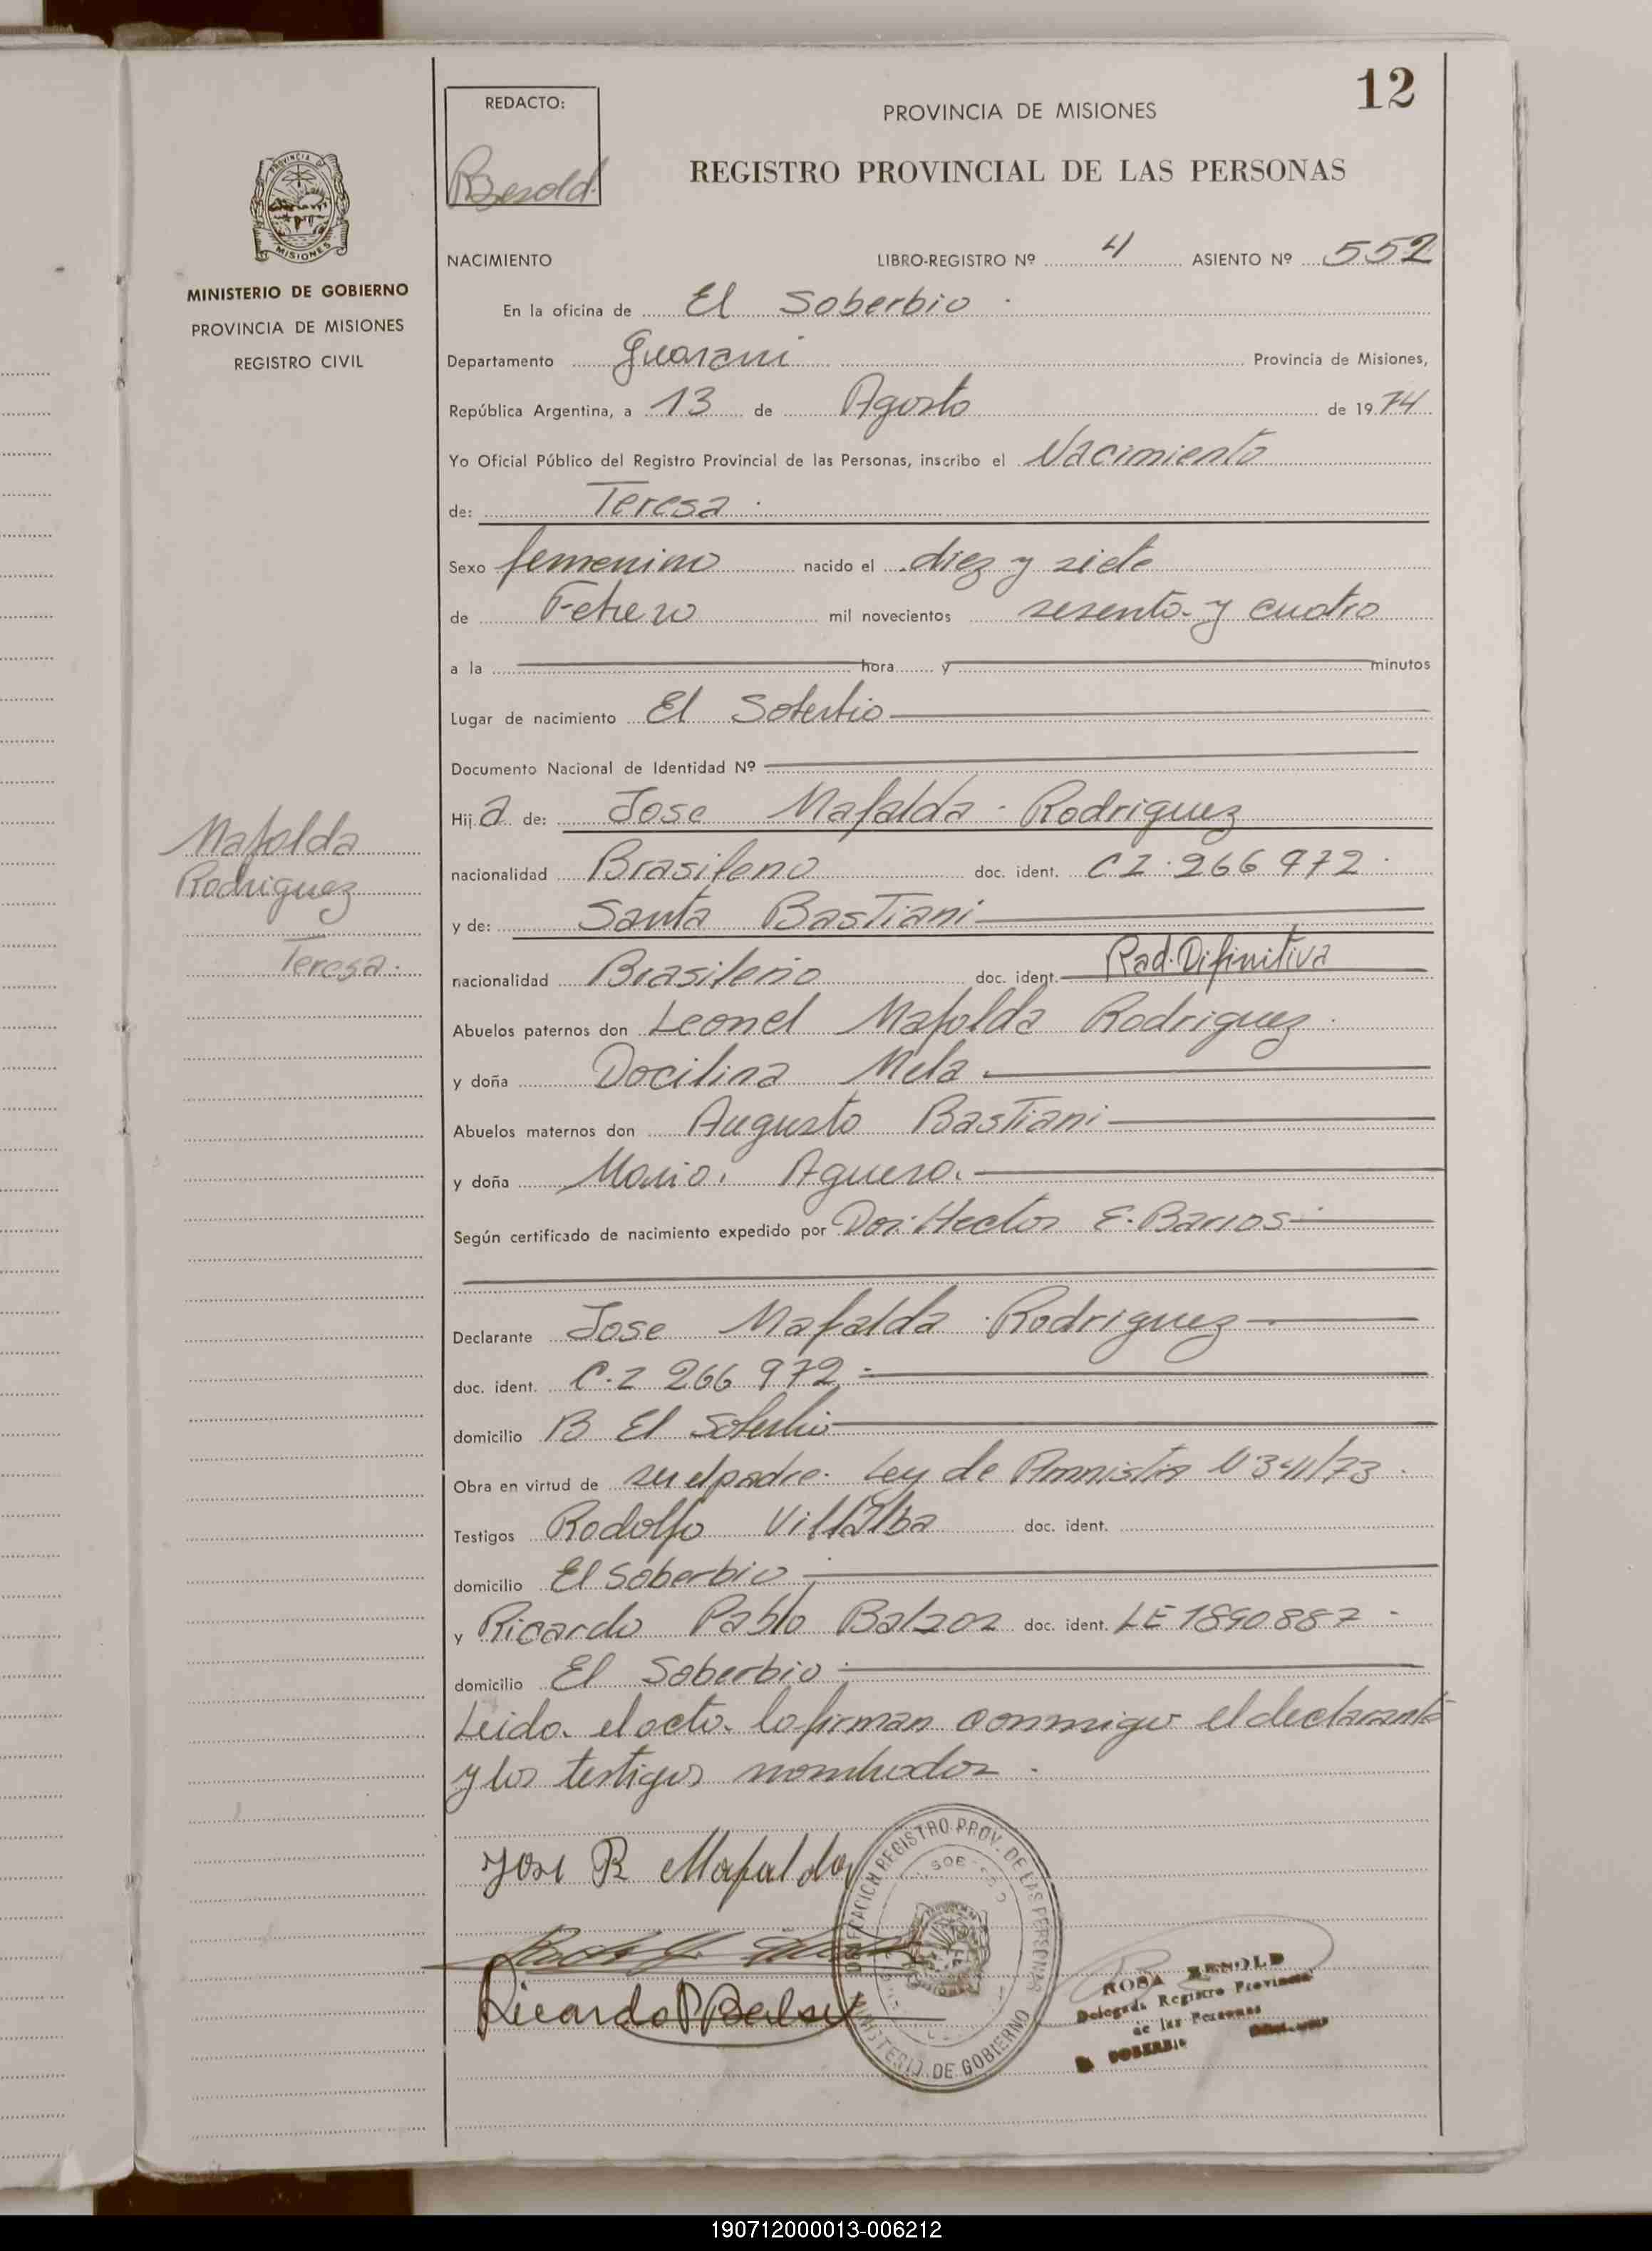 12
REDACTO:
PROVINCIA DE MISIONES
REGISTRO PROVINCIAL DE LAS PERSONAS
PROVINCIA DE
MISIONES
MINISTERIO DE GOBIERNO
PROVINCIA DE MISIONES
REGISTRO CIVIL
NACIMIENTO LIBRO-REGISTRO Nº 4 ASIENTO Nº 552
En la oficina de El Soberbio
Departamento Guarani Provincia de Misiones,
República Argentina, a 13 de Agosto de 1974
Yo Oficial Público del Registro Provincial de las Personas, inscribo el Nacimiento
de: Teresa
Sexo femenino nacido el diez y siete
de Febrero mil novecientos sesenta y cuatro
a la hora y minutos
Lugar de nacimiento El Soberbio
Documento Nacional de Identidad Nº
Hija de: Jose Mafalda Rodriguez
nacionalidad Brasileno doc. ident. C I 266 972
y de: Santa Bastiani
nacionalidad Brasileño doc. ident. Rad. Difinitiva
Abuelos paternos don Leonel Mafalda Rodriguez
y doña Docilina Mela
Abuelos maternos don Augusto Bastiani
y doña Maria Aguero
Según certificado de nacimiento expedido por Dor. Hector E. Barrios
Declarante Jose Mafalda Rodriguez
doc. ident. C. I 266 972
domicilio B El Soberbio
Obra en virtud de ser el padre. Ley de Amnistia N 3411/73
Testigos Rodolfo Villalba doc. ident.
domicilio El Soberbio
y Ricardo Pablo Balzoz doc. ident. LE 1890887
domicilio El Soberbio
Leida el acta lo firman conmigo el declarante
y los testigos nombrados
Mafalda
Rodriguez
Teresa
Jose R Mafalda
Ricardo P
REGISTRO PROV. DE LAS PERSONAS
MINISTERIO DE GOBIERNO
ROSA BENOLD
Delegada Registro Provincial
de las Personas
SOBERBIO
190712000013-006212